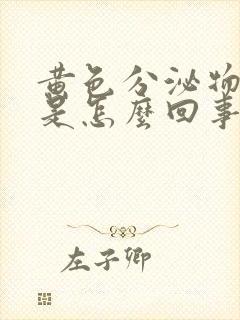 黄色分泌物
是怎麼回事
左子卿